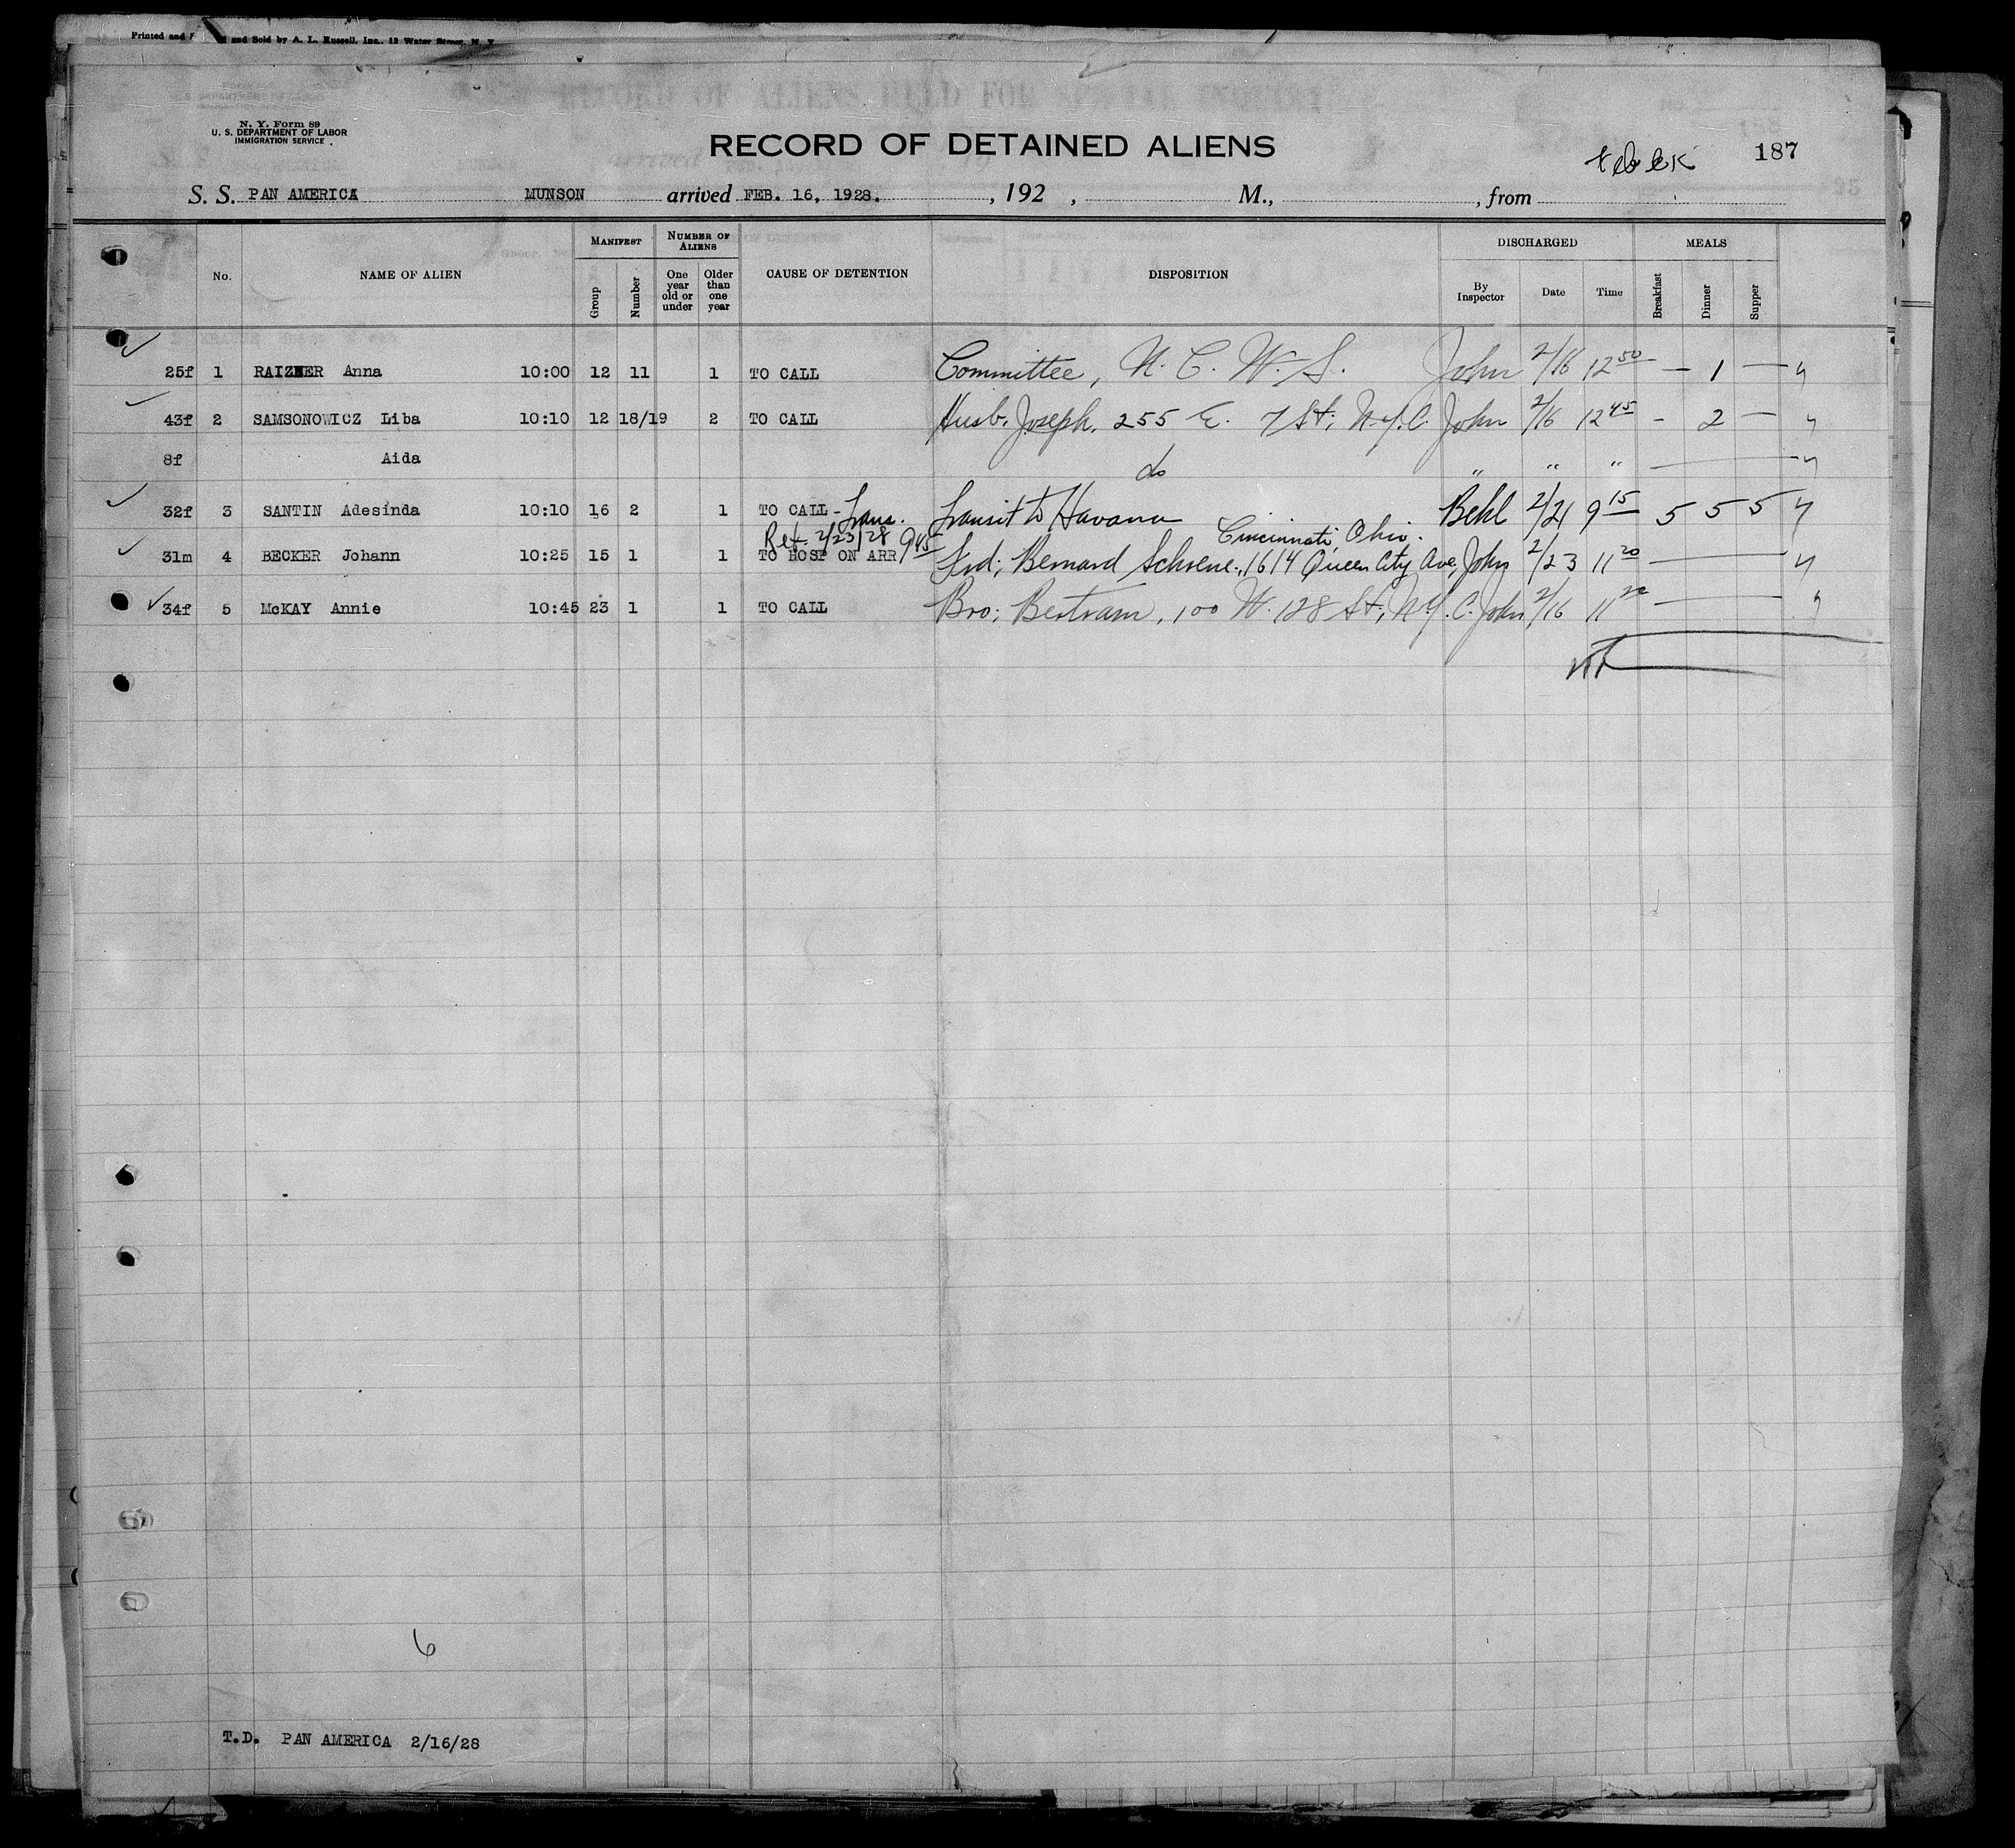 and Sold by A. L. Russell, Inc., 12 Water Street, N. Y.
N. Y. Form 89
U. S. DEPARTMENT OF LABOR
IMMIGRATION SERVICE
RECORD OF DETAINED ALIENS
187
S. S. PAN AMERICA MUNSON arrived FEB. 16, 1928. , 192 , M., , from
No. NAME OF ALIEN MANIFEST Group Number NUMBER OF ALIENS One year old or under Older than one year CAUSE OF DETENTION DISPOSITION DISCHARGED By Inspector Date Time MEALS Breakfast Dinner Supper
25f 1 RAIZNER Anna 10:00 12 11 1 TO CALL Committee, N. C. W. S. John 2/16 12 50 — 1 —
43f 2 SAMSONOWICZ Liba 10:10 12 18/19 2 TO CALL Husb. Joseph, 255 E. 7 St; N.Y.C. John 2/16 12 45 — 2 —
8f Aida do " " " —
32f 3 SANTIN Adesinda 10:10 16 2 1 TO CALL - Trans. Transit to Havana Behl 2/21 9 15 5 5 5
Ret. 2/23/28 9 45 Cincinnati, Ohio.
31m 4 BECKER Johann 10:25 15 1 1 TO HOSP ON ARR Frd; Bernard Schoene, 1614 Queen City Ave, John 2/23 11 20 —
34f 5 McKAY Annie 10:45 23 1 1 TO CALL Bro; Bertram, 100 W. 128 St; N.Y.C. John 2/16 11 20 —
6
T.D. PAN AMERICA 2/16/28